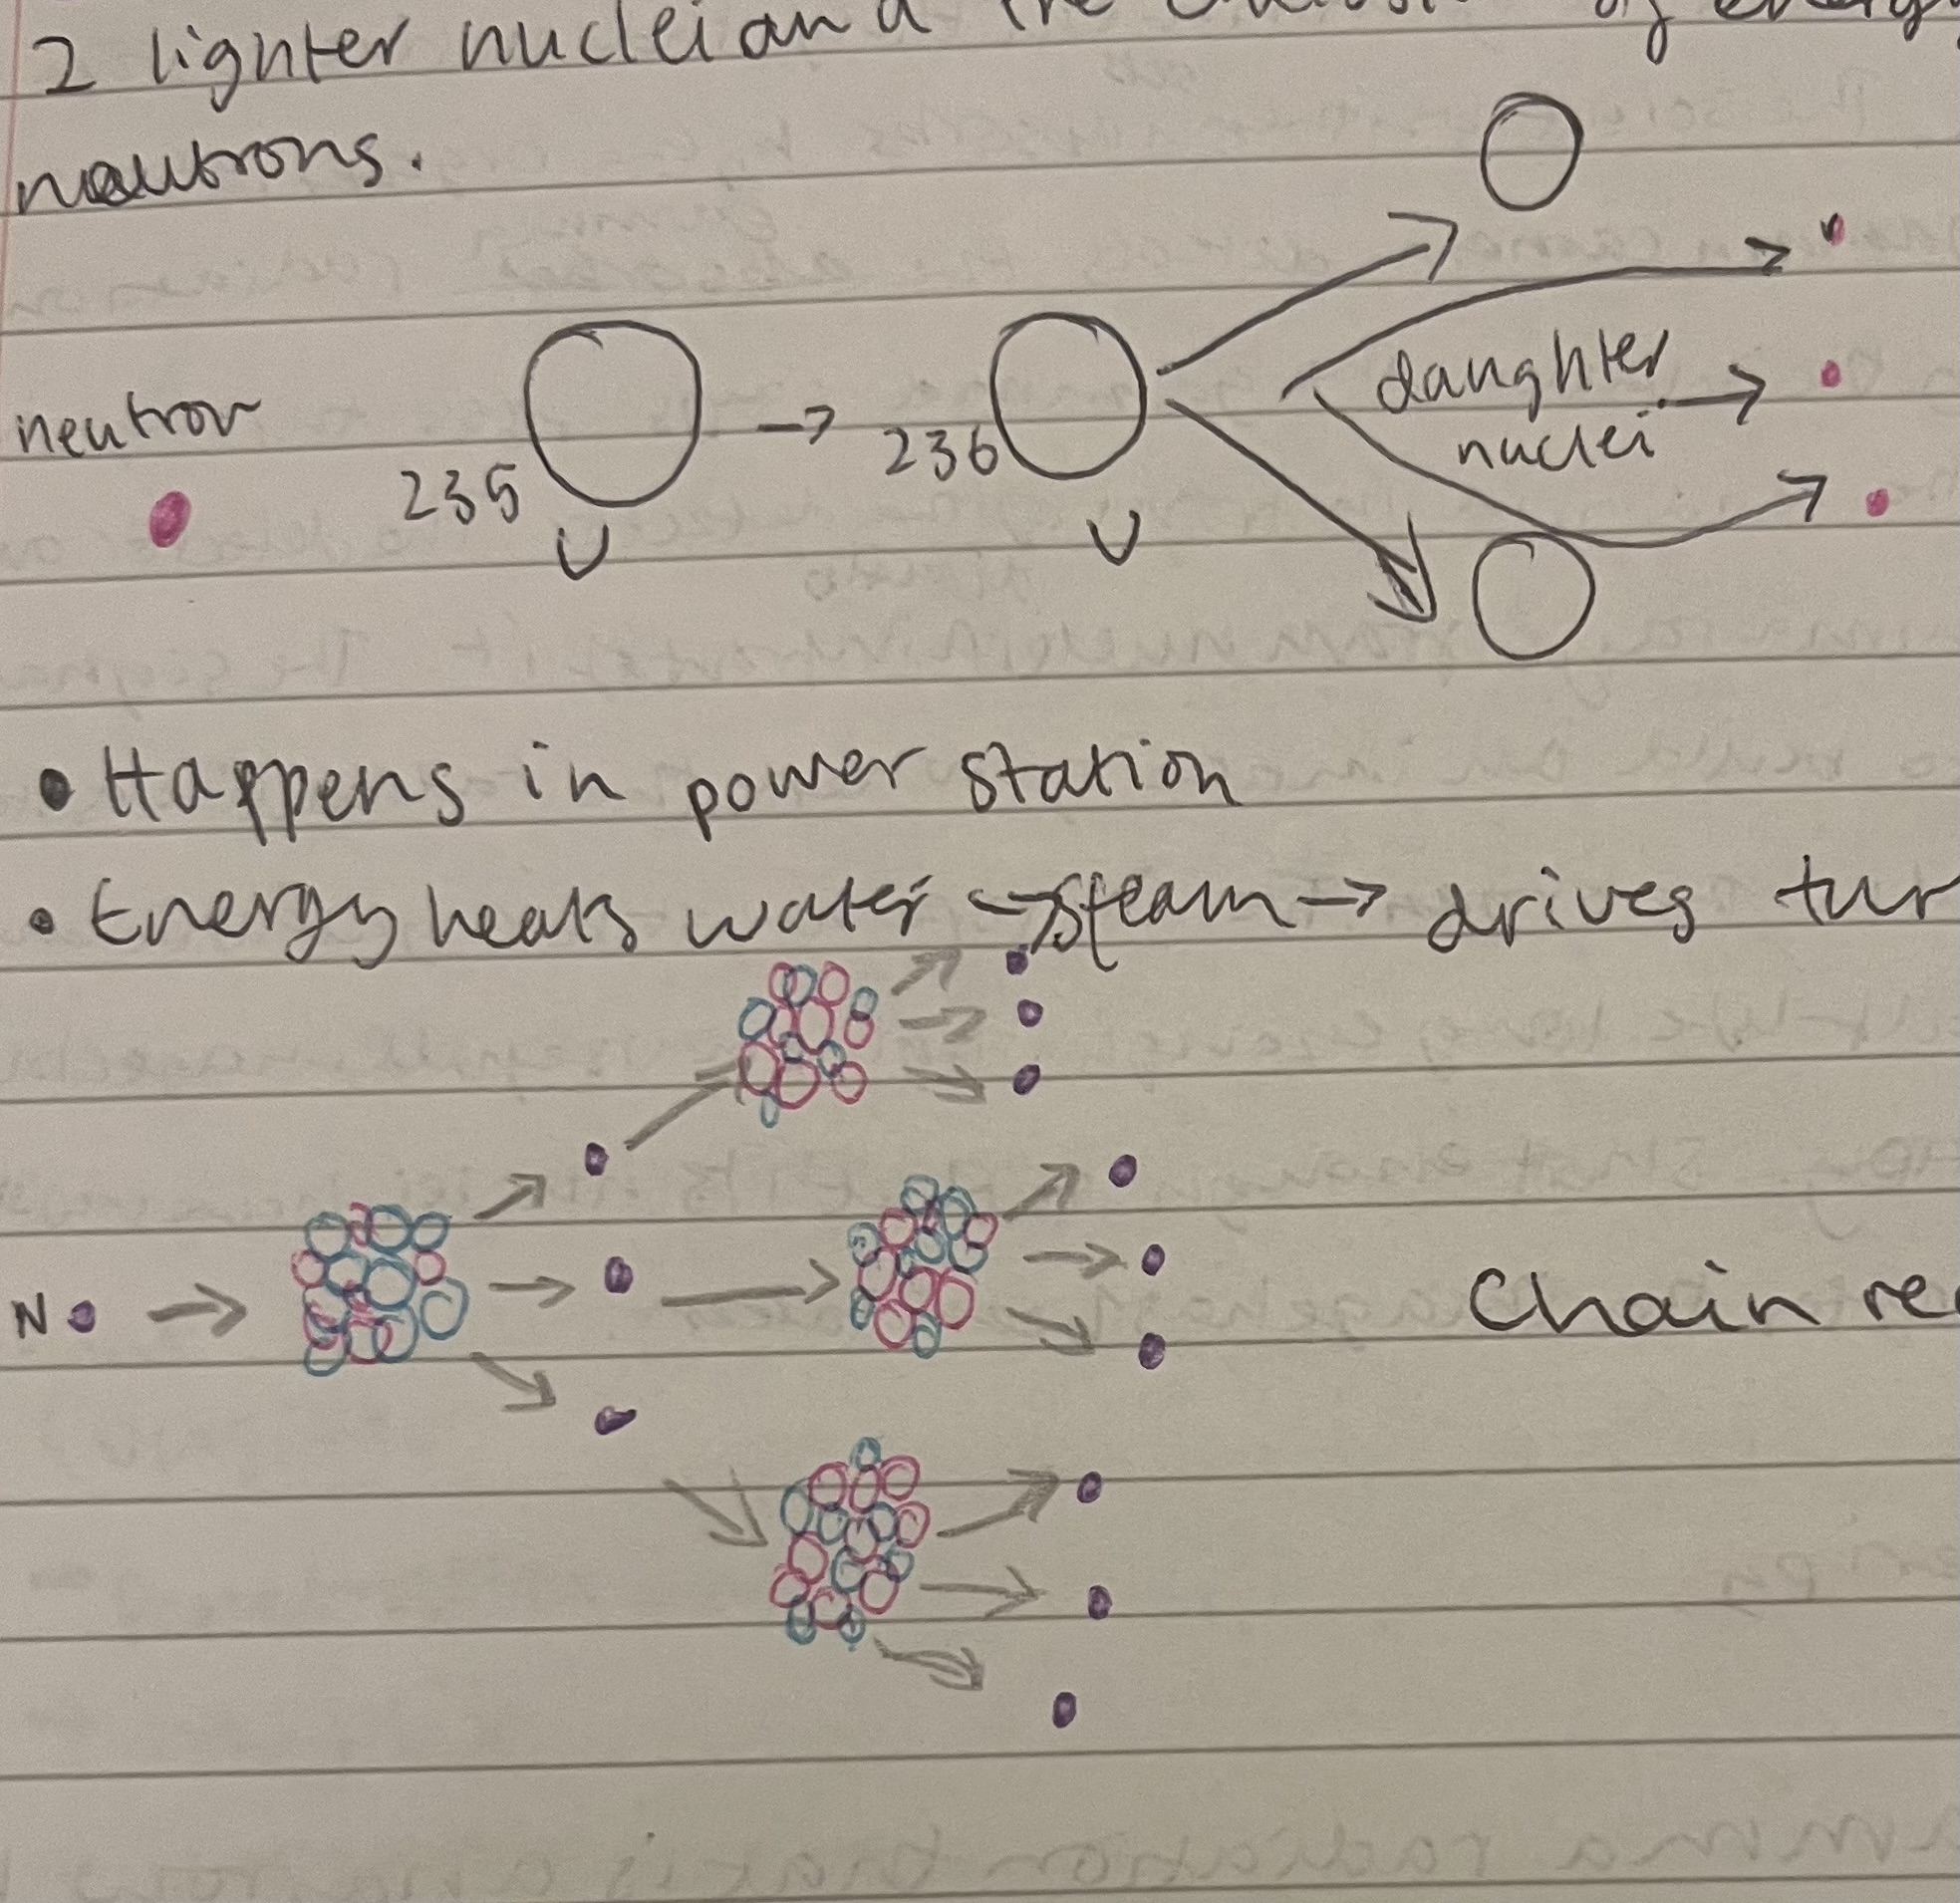 2 lighter nuclei and the of energy
neutrons.
neutron
235 U → 236 U
daughter
nuclei
• Happens in power station
• Energy heats water → steam → drives tur
N
Chain re